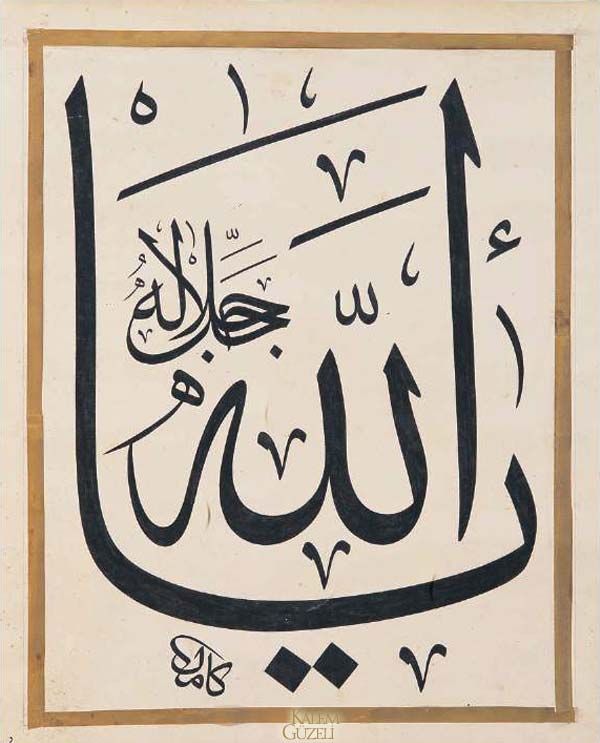 يا أَللّٰه
جَلَّ جَلَالُهُ
كامل
KALEM
GÜZELİ